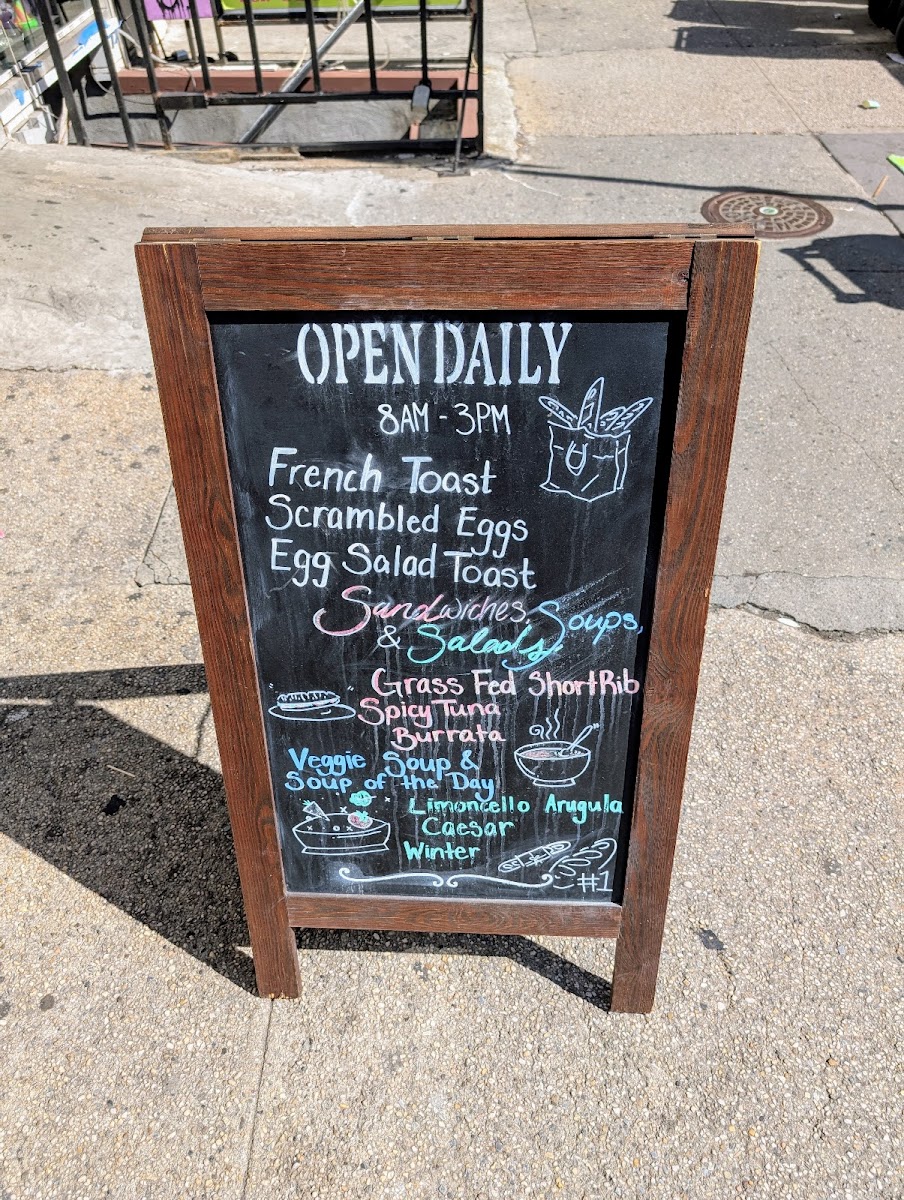 OPEN DAILY
8AM - 3PM
French Toast
Scrambled Eggs
Egg Salad Toast
Sandwiches, Soups,
& Salads
Grass Fed Short Rib
Spicy Tuna
Burrata
Veggie Soup &
Soup of the Day
Limoncello Arugula
Caesar
Winter
#1